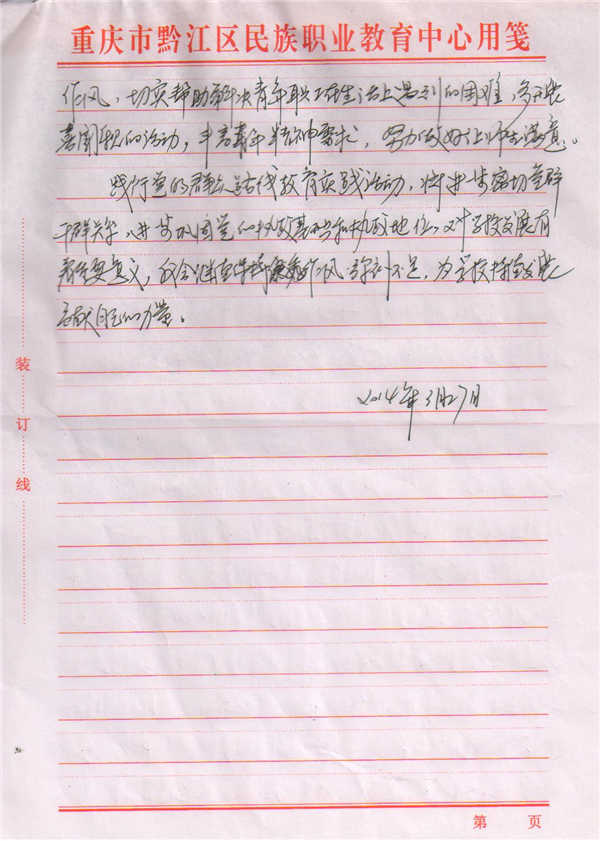 重庆市黔江区民族职业教育中心用笺
作风，切实帮助解决青年职工在生活上遇到的困难，多开展
喜闻乐的活动，丰富青年精神要求，努力做好让师生满意。
践行党的群众路线教育实践活动，将进一步密切党群
干群关系，进一步巩固党的执政基础和执政地位，对学校发展有
着重要意义，我会继续保持廉政作风，弥补不足，为学校持续发展
贡献自己的力量。
2014年3月27日
装
订
线
第 页